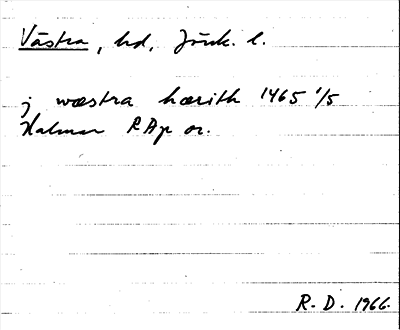 Västra, hd, Jönk. l.
j wæstra hærith 1465 1/5
Kalmar RAp or.
R. D. 1966.